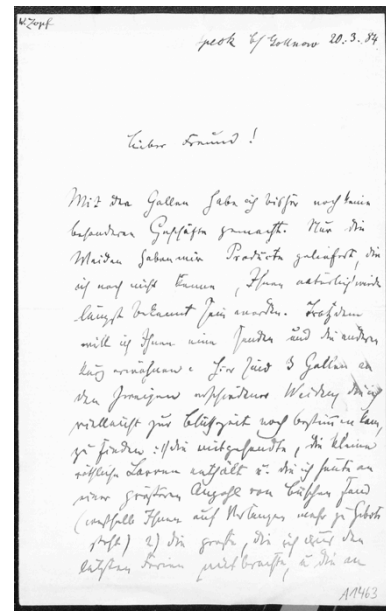 W. Zopf
Speck b/ Gollnow 20.3.84
Lieber Freund!
Mit den Gallen habe ich bisher noch keine
besonderen Geschäfte gemacht. Nur die
Weiden haben mir Producte geliefert, die
ich noch nicht kenne, Ihnen natürlich
längst bekannt sein werden. Trotzdem
will ich Ihnen eine senden und die anderen
kurz erwähnen. Hier sind 3 Gallen an
den Zweigen verschiedener Weiden, die ich
vielleicht zur Blüthzeit noch bestimmen kann,
zu finden: 1) die mitgesandte, die kleine
röthliche Larven enthält u. die ich heute an
einer größeren Anzahl von Büschen fand
(weshalb Ihnen auf Verlangen mehr zu Gebote
steht) 2) die große, die ich aus den
letzten Ferien mitbrachte, u. die an
A1463